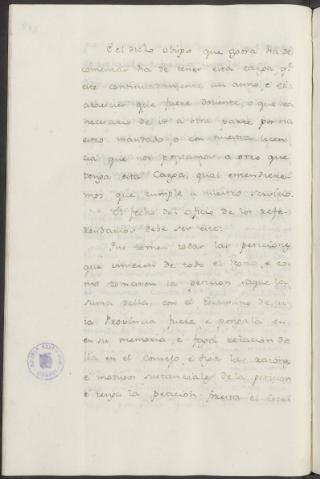 E el dicho obispo que gora ha de
comenzar ha de tener esta carga, q.e
es continuadamente un anno, e si
acaesciere que fuere doliente, o que sea
necesario de ir a otra parte por nu
estro mandado, o con nuestra licen
cia que nos pongamos a otro que
tenga esta Carga, qual entendiere
mos que cumple a nuestro servicio.
El fecho del oficio de los refe
rendarios debe ser este:
Que tomen todas las peticiones
que vinieren de todo el Regno, e co
mo tomaren la peticion saque la
suma della, con el Escribano de cu
ia Provincia fuere e pongala en
en su memoria e faga relacion de
lla en el Consejo e diga las razones
e motivos sustanciales de la peticion
e tenga la peticion